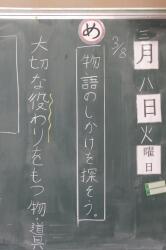 三月八日火曜日
3/8
め
物語のしかけを探そう。
大切な役わりをもつ物・道具